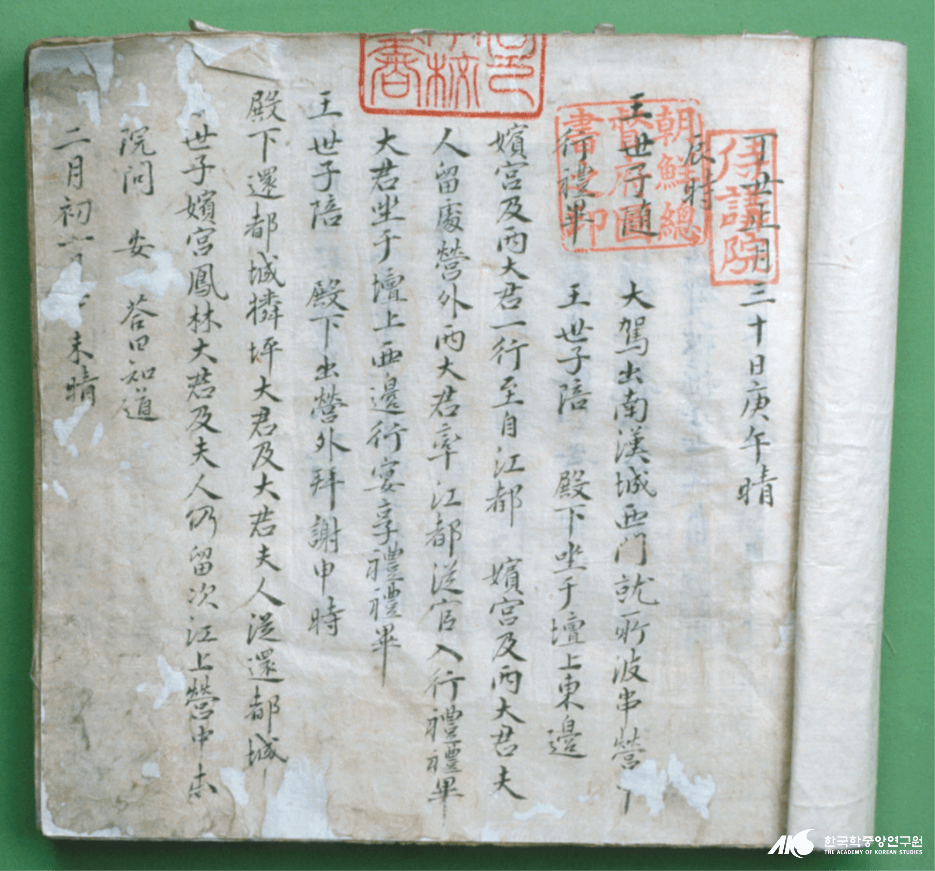 丁丑正月三十日庚午晴
辰時
王世子隨 大駕出南漢城西門就所波串營下
行禮畢 王世子陪 殿下坐于壇上東邊
嬪宮及兩大君一行至自江都 嬪宮及兩大君夫
人留處營外兩大君率江都從官入行禮禮畢
大君坐于壇上西邊行宴享禮禮畢
王世子陪 殿下出營外拜謝申時
殿下還都城獜坪大君及大君夫人從還都城
世子嬪宮鳳林大君及夫人仍留次江上營中本
院問 安 答曰知道
二月初 未晴
侍講院
朝鮮總
督府圖
書之印
한국학중앙연구원
THE ACADEMY OF KOREAN STUDIES